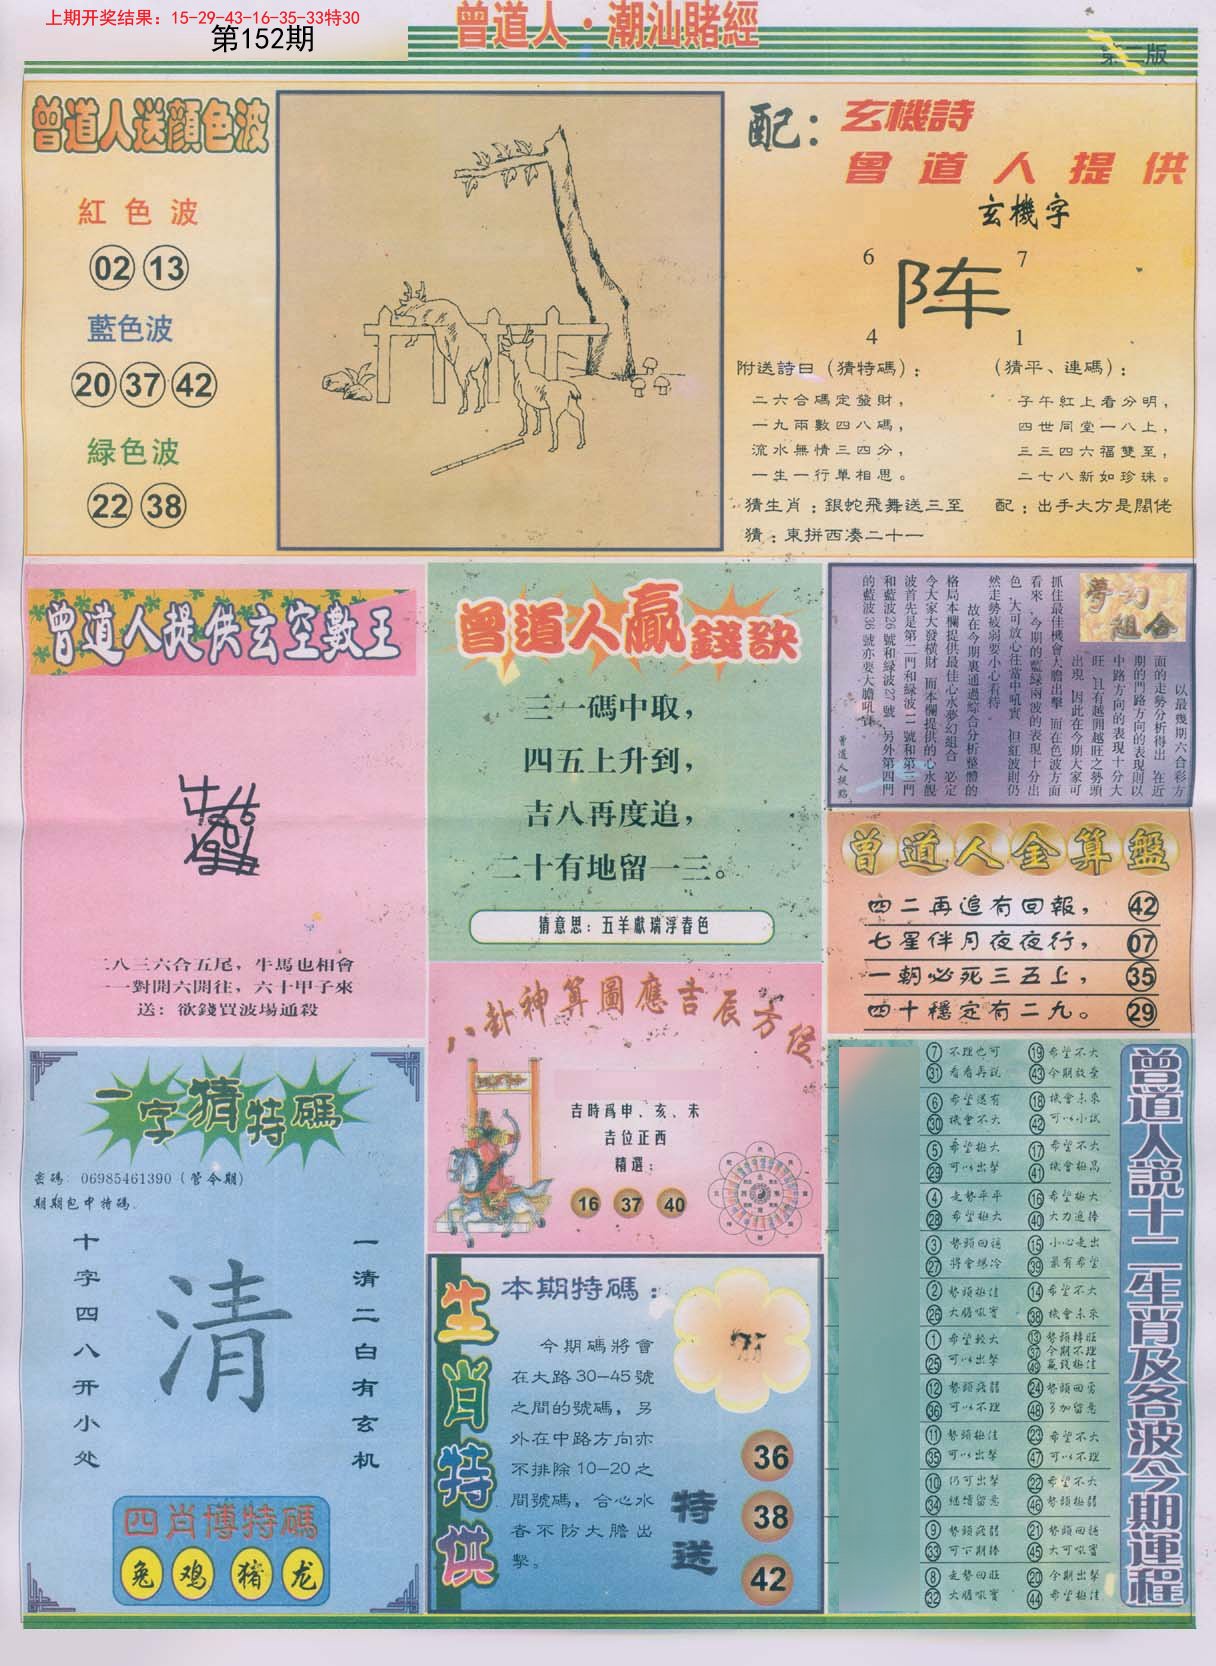 上期开奖结果：15-29-43-16-35-33特30
第152期
曾道人·潮汕賭經
第二版
曾道人送顔色波
紅色波
02 13
藍色波
20 37 42
緑色波
22 38
配：
玄機詩
曾道人提供
玄機字
6 7
阵
4 1
附送詩曰（猜特碼）：
二六合碼定發財，
一九兩數四八碼，
流水無情三四分，
一生一行單相思。
（猜平、連碼）：
子午紅上看分明，
四世同堂一八上，
三三四六福雙至，
二七八新如珍珠。
猜生肖：銀蛇飛舞送三至
配：出手大方是闊佬
猜：東拼西凑二十一
曾道人提供玄空數王
二八三六合五尾，牛馬也相會
一一對開六開往，六十甲子來
送：欲錢買波場通殺
曾道人贏錢訣
三一碼中取，
四五上升到，
吉八再度追，
二十有地留一三。
猜意思：五羊獻瑞浮春色
夢幻組合
以最幾期六合彩方
面的走勢分析得出，在近
期的門路方向的表現則以
中路方向的表現十分大
旺，且有越開越旺之勢頭
出現，因此在今期大家可
抓住最佳機會大膽出擊，而在色波方面
看來，今期的藍緑兩波的表現十分出
色，大可放心在當中吼實，但紅波則仍
然走勢疲弱要小心看待。
故在今期裏通過綜合分析整體的
格局本欄提供最佳心水夢幻組合，必定
令大家大發橫財，而本欄提供的心水靚
波首先是第二門和緑波11號和第三門
和藍波26號和緑波27號，另外第四門
的藍波36號亦要大膽吼實。
曾道人提點
曾道人金算盤
四二再追有回報， 42
七星伴月夜夜行， 07
一朝必死三五上， 35
四十穩定有二九。 29
八卦神算圖應吉辰方位
吉時爲申、亥、未
吉位正西
精選：
16 37 40
一字猜特碼
密碼：06985461390（管令期）
期期包中特碼.
一清二白有玄机
清
十字四八开小处
四肖博特碼
兔 鸡 猪 龙
生肖特供
本期特碼：
今期碼將會
在大路30—45號
之間的號碼，另
外在中路方向亦
不排除10—20之
間號碼，合心水
者不防大膽出
擊。
特送
36
38
42
曾道人説十二生肖及各波今期運程
7 不理也可 19 希望不大
31 看看再説 43 今期放棄
6 希望還有 18 機會未來
30 機會不大 42 可以小試
5 希望極大 17 希望不大
29 可以出擊 41 機會極高
4 走勢平平 16 希望極大
28 希望極大 40 大力追捧
3 勢頭回穩 15 小心走出
27 將會爆冷 39 最有希望
2 勢頭極佳 14 希望不大
26 大膽吼實 38 機會未來
1 希望較大 13 勢頭轉旺
25 可以出擊 37 今期不理
49 贏錢極佳
12 勢頭疲弱 24 勢頭回勇
36 可以不理 48 多加留意
11 勢頭極佳 23 希望不大
35 可以出擊 47 可以不理
10 仍可出擊 22 希望不大
34 繼續留意 46 勢頭極弱
9 勢頭疲弱 21 勢頭回穩
33 可下期捧 45 大可吼實
8 走勢回旺 20 今期出擊
32 大膽吼實 44 希望極佳